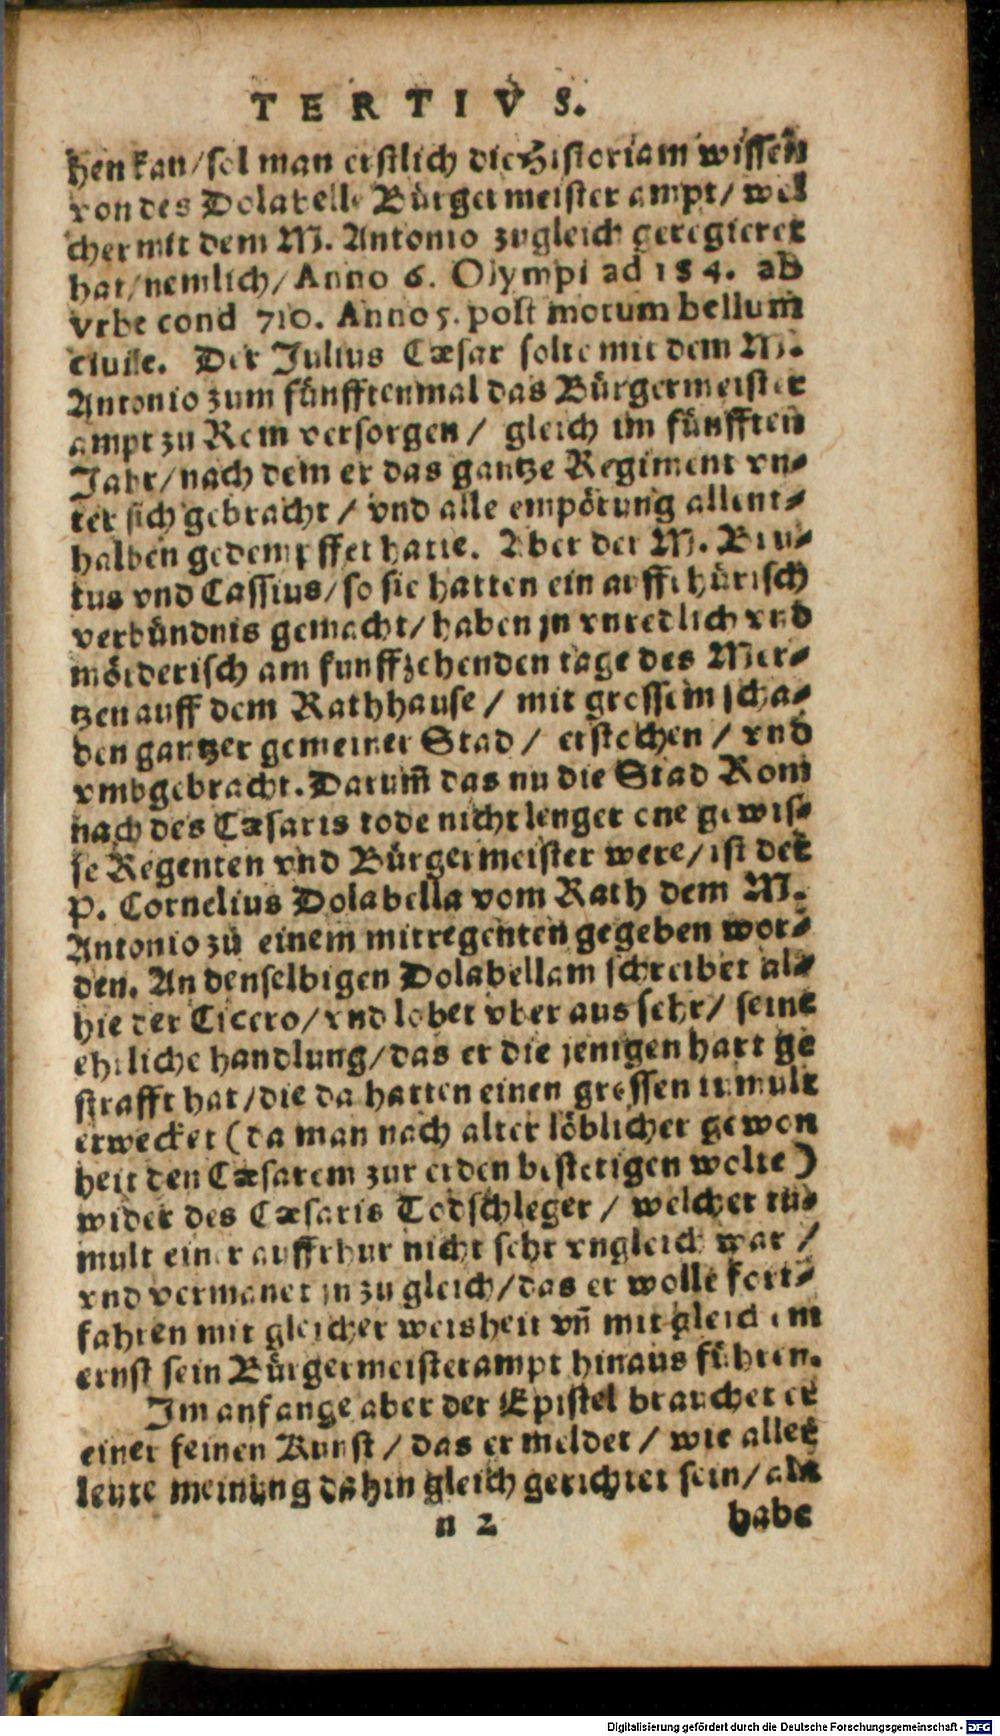 TERTIVS.
hen kan/sol man erstlich die Historiam wissen
von des Dolabelle Bürgermeister ampt/ wel
cher mit dem M. Antonio zugleich geregieret
hat/nemlich/Anno 6. Olympiad 184. ab
vrbe cond 710. Anno 5. post motum bellum
ciuile. Der Julius Cæsar solte mit dem M.
Antonio zum fünfftenmal das Bürgermeister
ampt zu Rom versorgen / gleich im fünfften
Jahr/nach dem er das gantze Regiment vn⸗
ter sich gebracht / vnd alle empörung allent⸗
halben gedempffet hatte. Aber der M. Bru⸗
tus vnd Cassius/so sie hatten ein auffrhürisch
verbündnis gemacht/haben jn vnredlich vnd
mörderisch am funffzehenden tage des Mer⸗
tzen auff dem Rathhause / mit grossem scha⸗
den gantzer gemeiner Stad / erstochen / vnd
vmbgebracht. Darum̃ das nu die Stad Rom
nach des Cæsaris tode nicht lenger one gewis⸗
se Regenten vnd Bürgermeister were/ist der
P. Cornelius Dolabella vom Rath dem M.
Antonio zu einem mitregenten gegeben wor⸗
den. An denselbigen Dolabellam schreibet al⸗
hie der Cicero/vnd lobet vber aus sehr/ seine
ehrliche handlung/das er die jenigen hart ge
strafft hat/die da hatten einen grossen tumult
erwecket (da man nach alter löblicher gewon
heit den Cæsarem zur erden bestetigen wolte)
wider des Cæsaris Todschleger / welcher tu⸗
mult einer auffrhur nicht sehr vngleich war /
vnd vermanet jn zu gleich/das er wolle fort⸗
fahren mit gleicher weisheit vñ mit gleichem
ernst sein Bürgermeisterampt hinaus führen.
Im anfange aber der Epistel brauchet er
einer feinen Kunst / das er meldet / wie aller
leute meinung dahin gleich gerichtet sein/als
n 2 habe
Digitalisierung gefördert durch die Deutsche Forschungsgemeinschaft - DFG